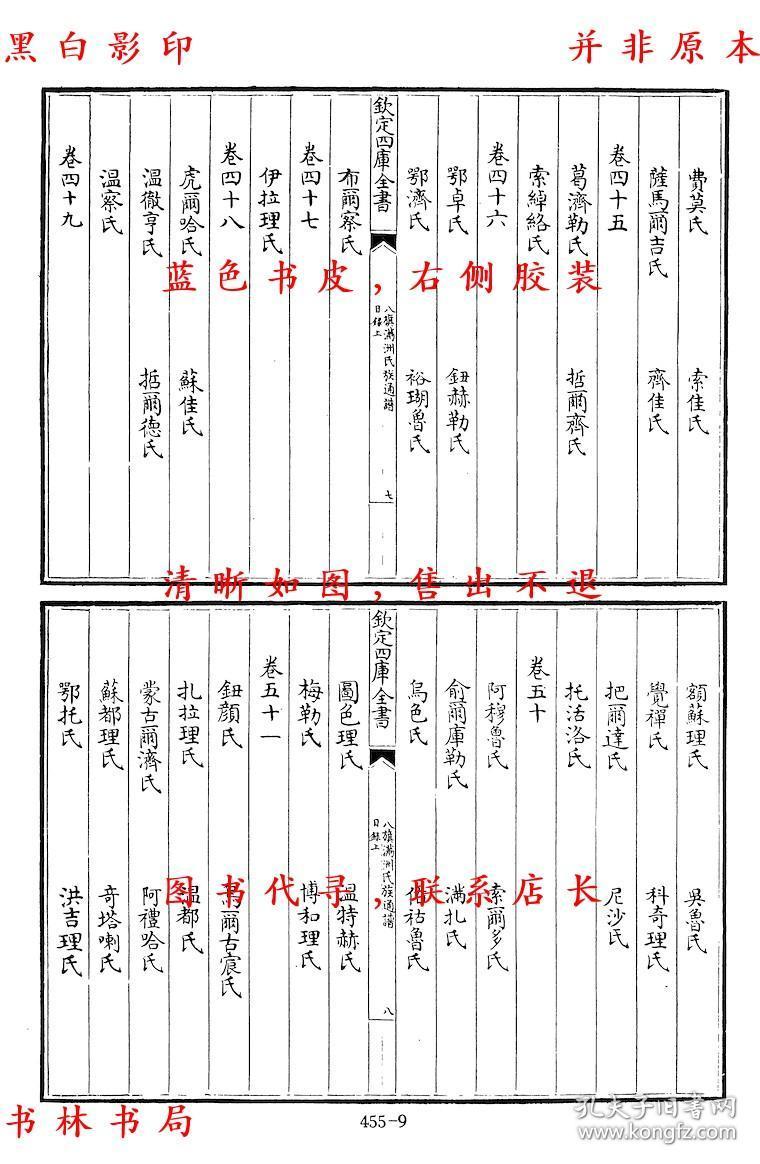 黑白影印
并非原本
費莫氏 索佳氏
薩馬爾吉氏 齊佳氏
卷四十五
葛濟勒氏 哲爾齊氏
索綽絡氏
卷四十六
鄂卓氏 鈕赫勒氏
鄂濟氏 裕瑚魯氏
欽定四庫全書
八旗滿洲氏族通譜
目録上
七
布爾察氏
卷四十七
伊拉理氏
卷四十八
虎爾哈氏 蘇佳氏
溫徹亨氏 哲爾德氏
溫察氏
卷四十九
蓝色书皮，右侧胶装
清晰如图，售出不退
額蘇理氏 吳魯氏
覺禪氏 科奇理氏
把爾達氏 尼沙氏
托活洛氏
卷五十
阿穆魯氏 索爾多氏
俞爾庫勒氏 滿扎氏
烏色氏 祜魯氏
欽定四庫全書
八旗滿洲氏族通譜
目録上
八
圖色理氏 溫特赫氏
梅勒氏 博和理氏
卷五十一
鈕顔氏 黑爾古宸氏
扎拉理氏 溫都氏
蒙古爾濟氏 阿禮哈氏
蘇都理氏 奇塔喇氏
鄂托氏 洪吉理氏
图书代寻，联系店长
书林书局
455-9
孔夫子旧书网
www.kongfz.com